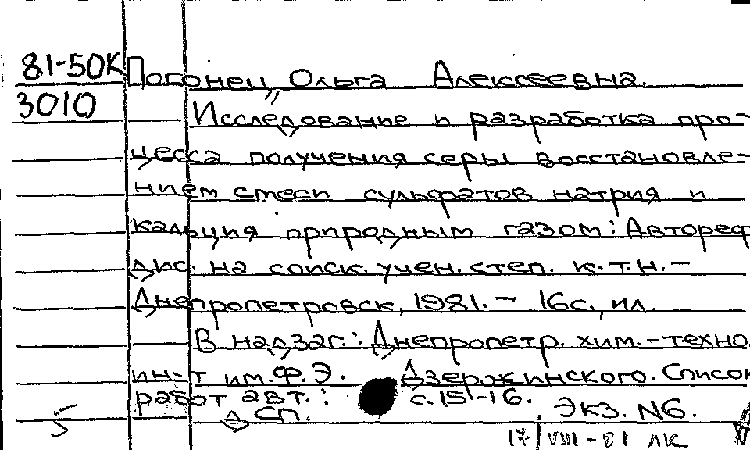 81-50К Погонец, Ольга Алексеевна.
3010 Исследование и разработка про-
цесса получения серы восстановле-
нием смеси сульфатов натрия и
кальция природным газом: Автореф
дис. на соиск. учен. степ. к.т.н.-
Днепропетровск, 1981. - 16с., ил.
В надзаг.: Днепропетр. хим.-техно
ин-т им. Ф.Э. Дзержинского. Список
работ авт.: с.15-16.
5 СП. Экз. N6.
17/VIII-81